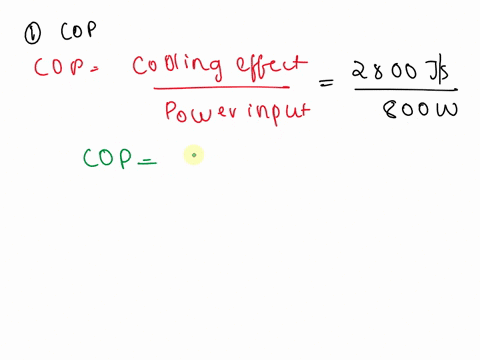 ① COP
COP = Cooling effect / Power input = 2800 J/s / 800W
COP =